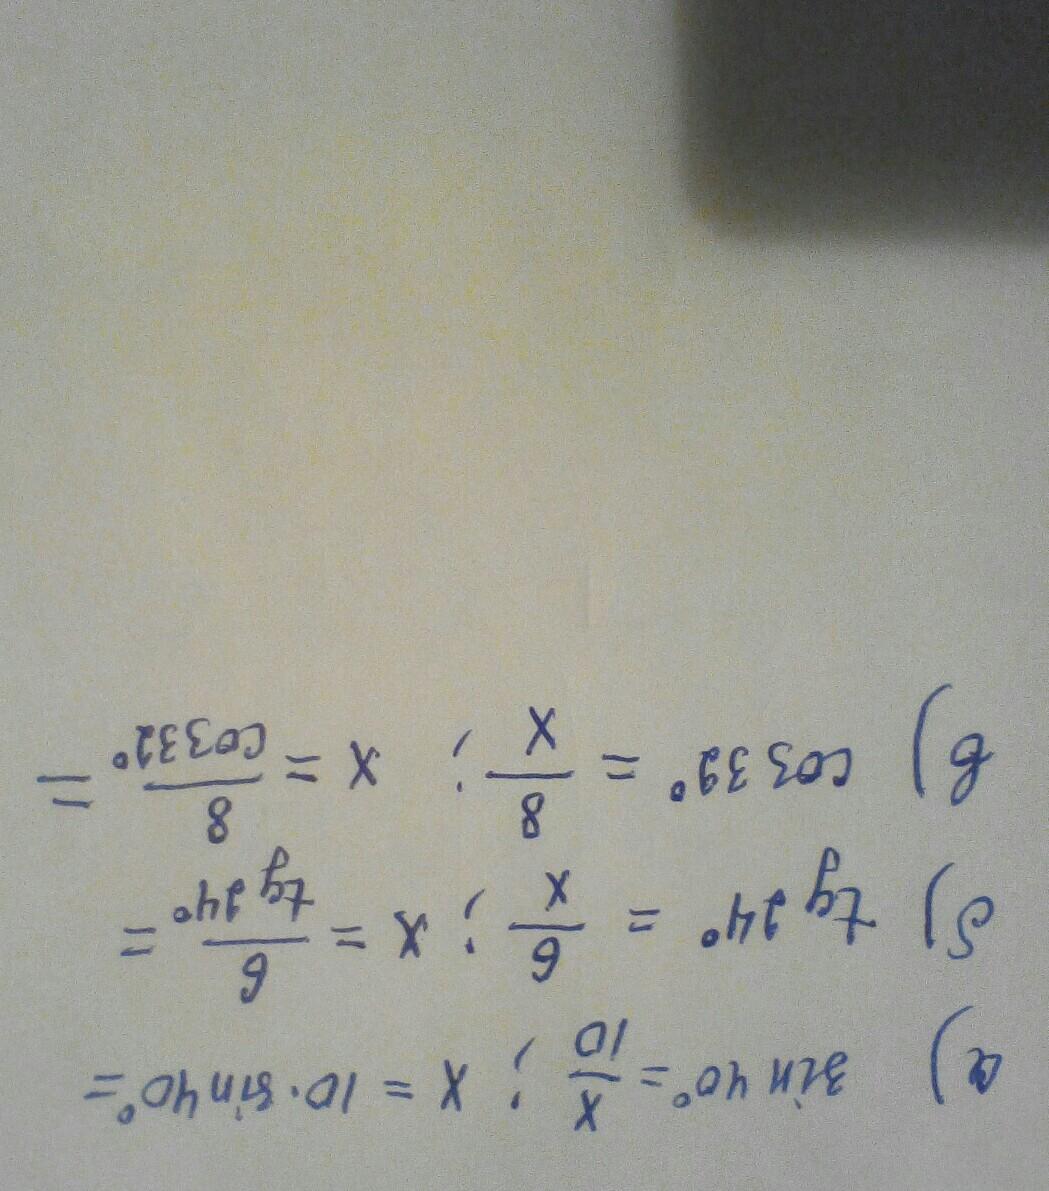 а) sin 40° = x/10 ; x = 10·sin 40° =
б) tg 24° = 6/x ; x = 6/tg 24° =
в) cos 32° = 8/x ; x = 8/cos 32° =